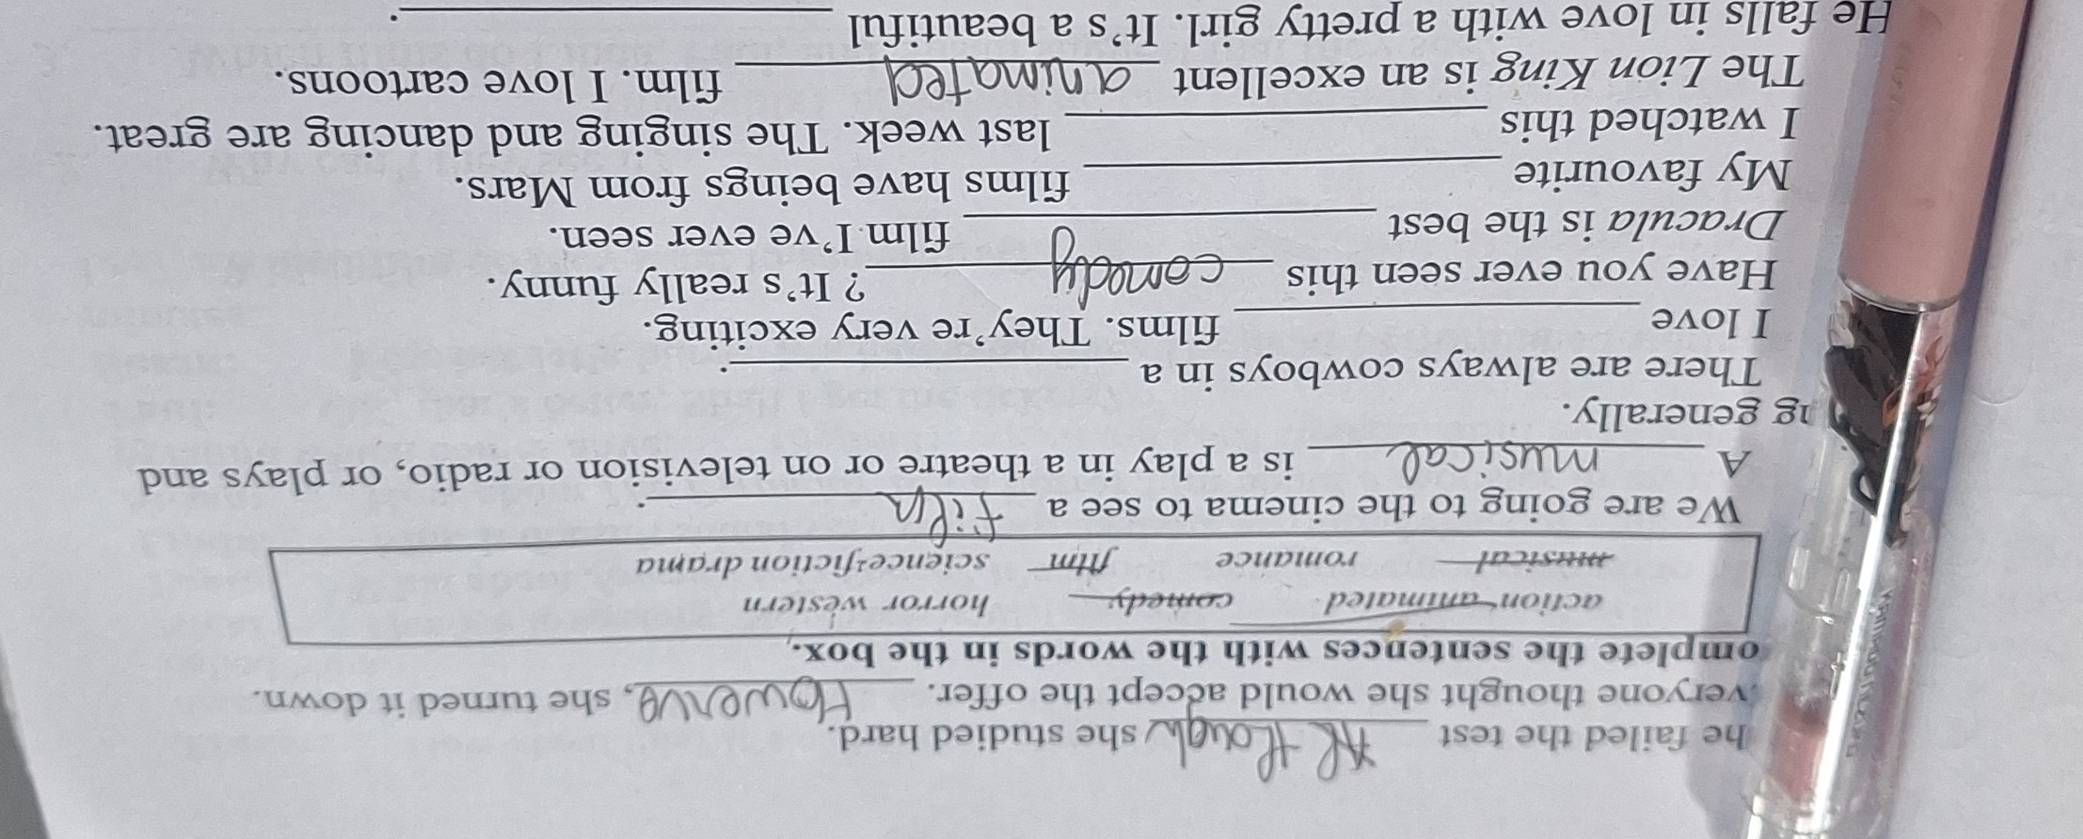 he failed the test Although she studied hard.
veryone thought she would accept the offer. Howeve, she turned it down.
omplete the sentences with the words in the box.
action animated comedy horror western
musical romance film science-fiction drama
We are going to the cinema to see a film.
A musical is a play in a theatre or on television or radio, or plays and
ng generally.
There are always cowboys in a ________.
I love ________ films. They're very exciting.
Have you ever seen this comedy? It's really funny.
Dracula is the best ________ film I've ever seen.
My favourite ________ films have beings from Mars.
I watched this ________ last week. The singing and dancing are great.
The Lion King is an excellent animated film. I love cartoons.
He falls in love with a pretty girl. It's a beautiful ________.